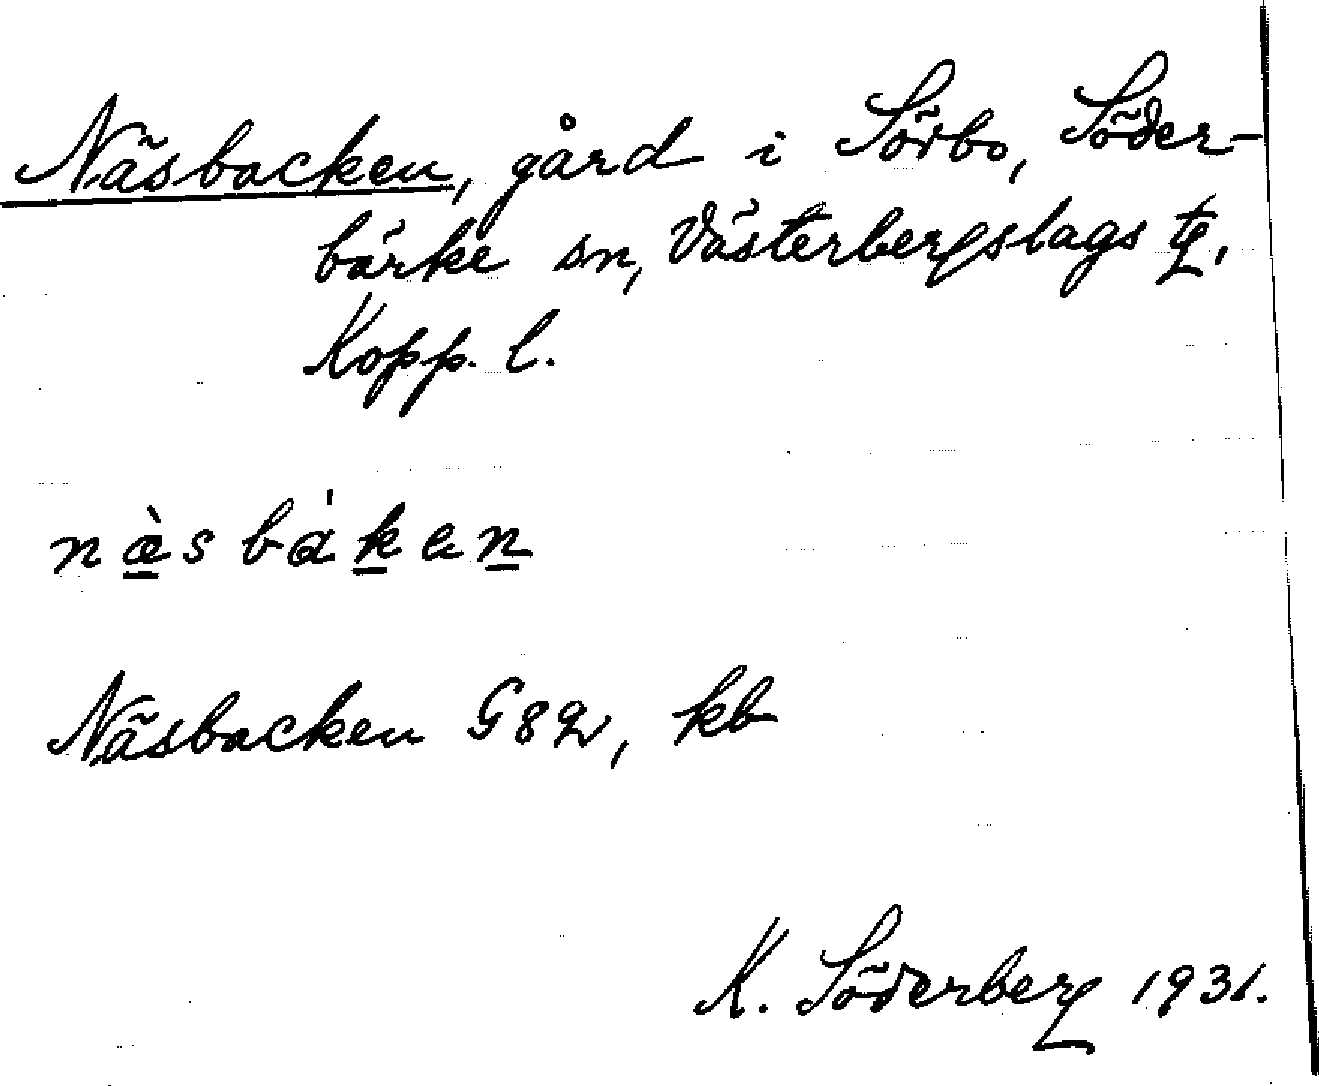 Näsbacken, gård i Sörbo, Söder-
bärke sn, Västerbergslags tg,
Kopp. l.
næ̀sbáken
Näsbacken G82, kb
K. Söderberg 1931.